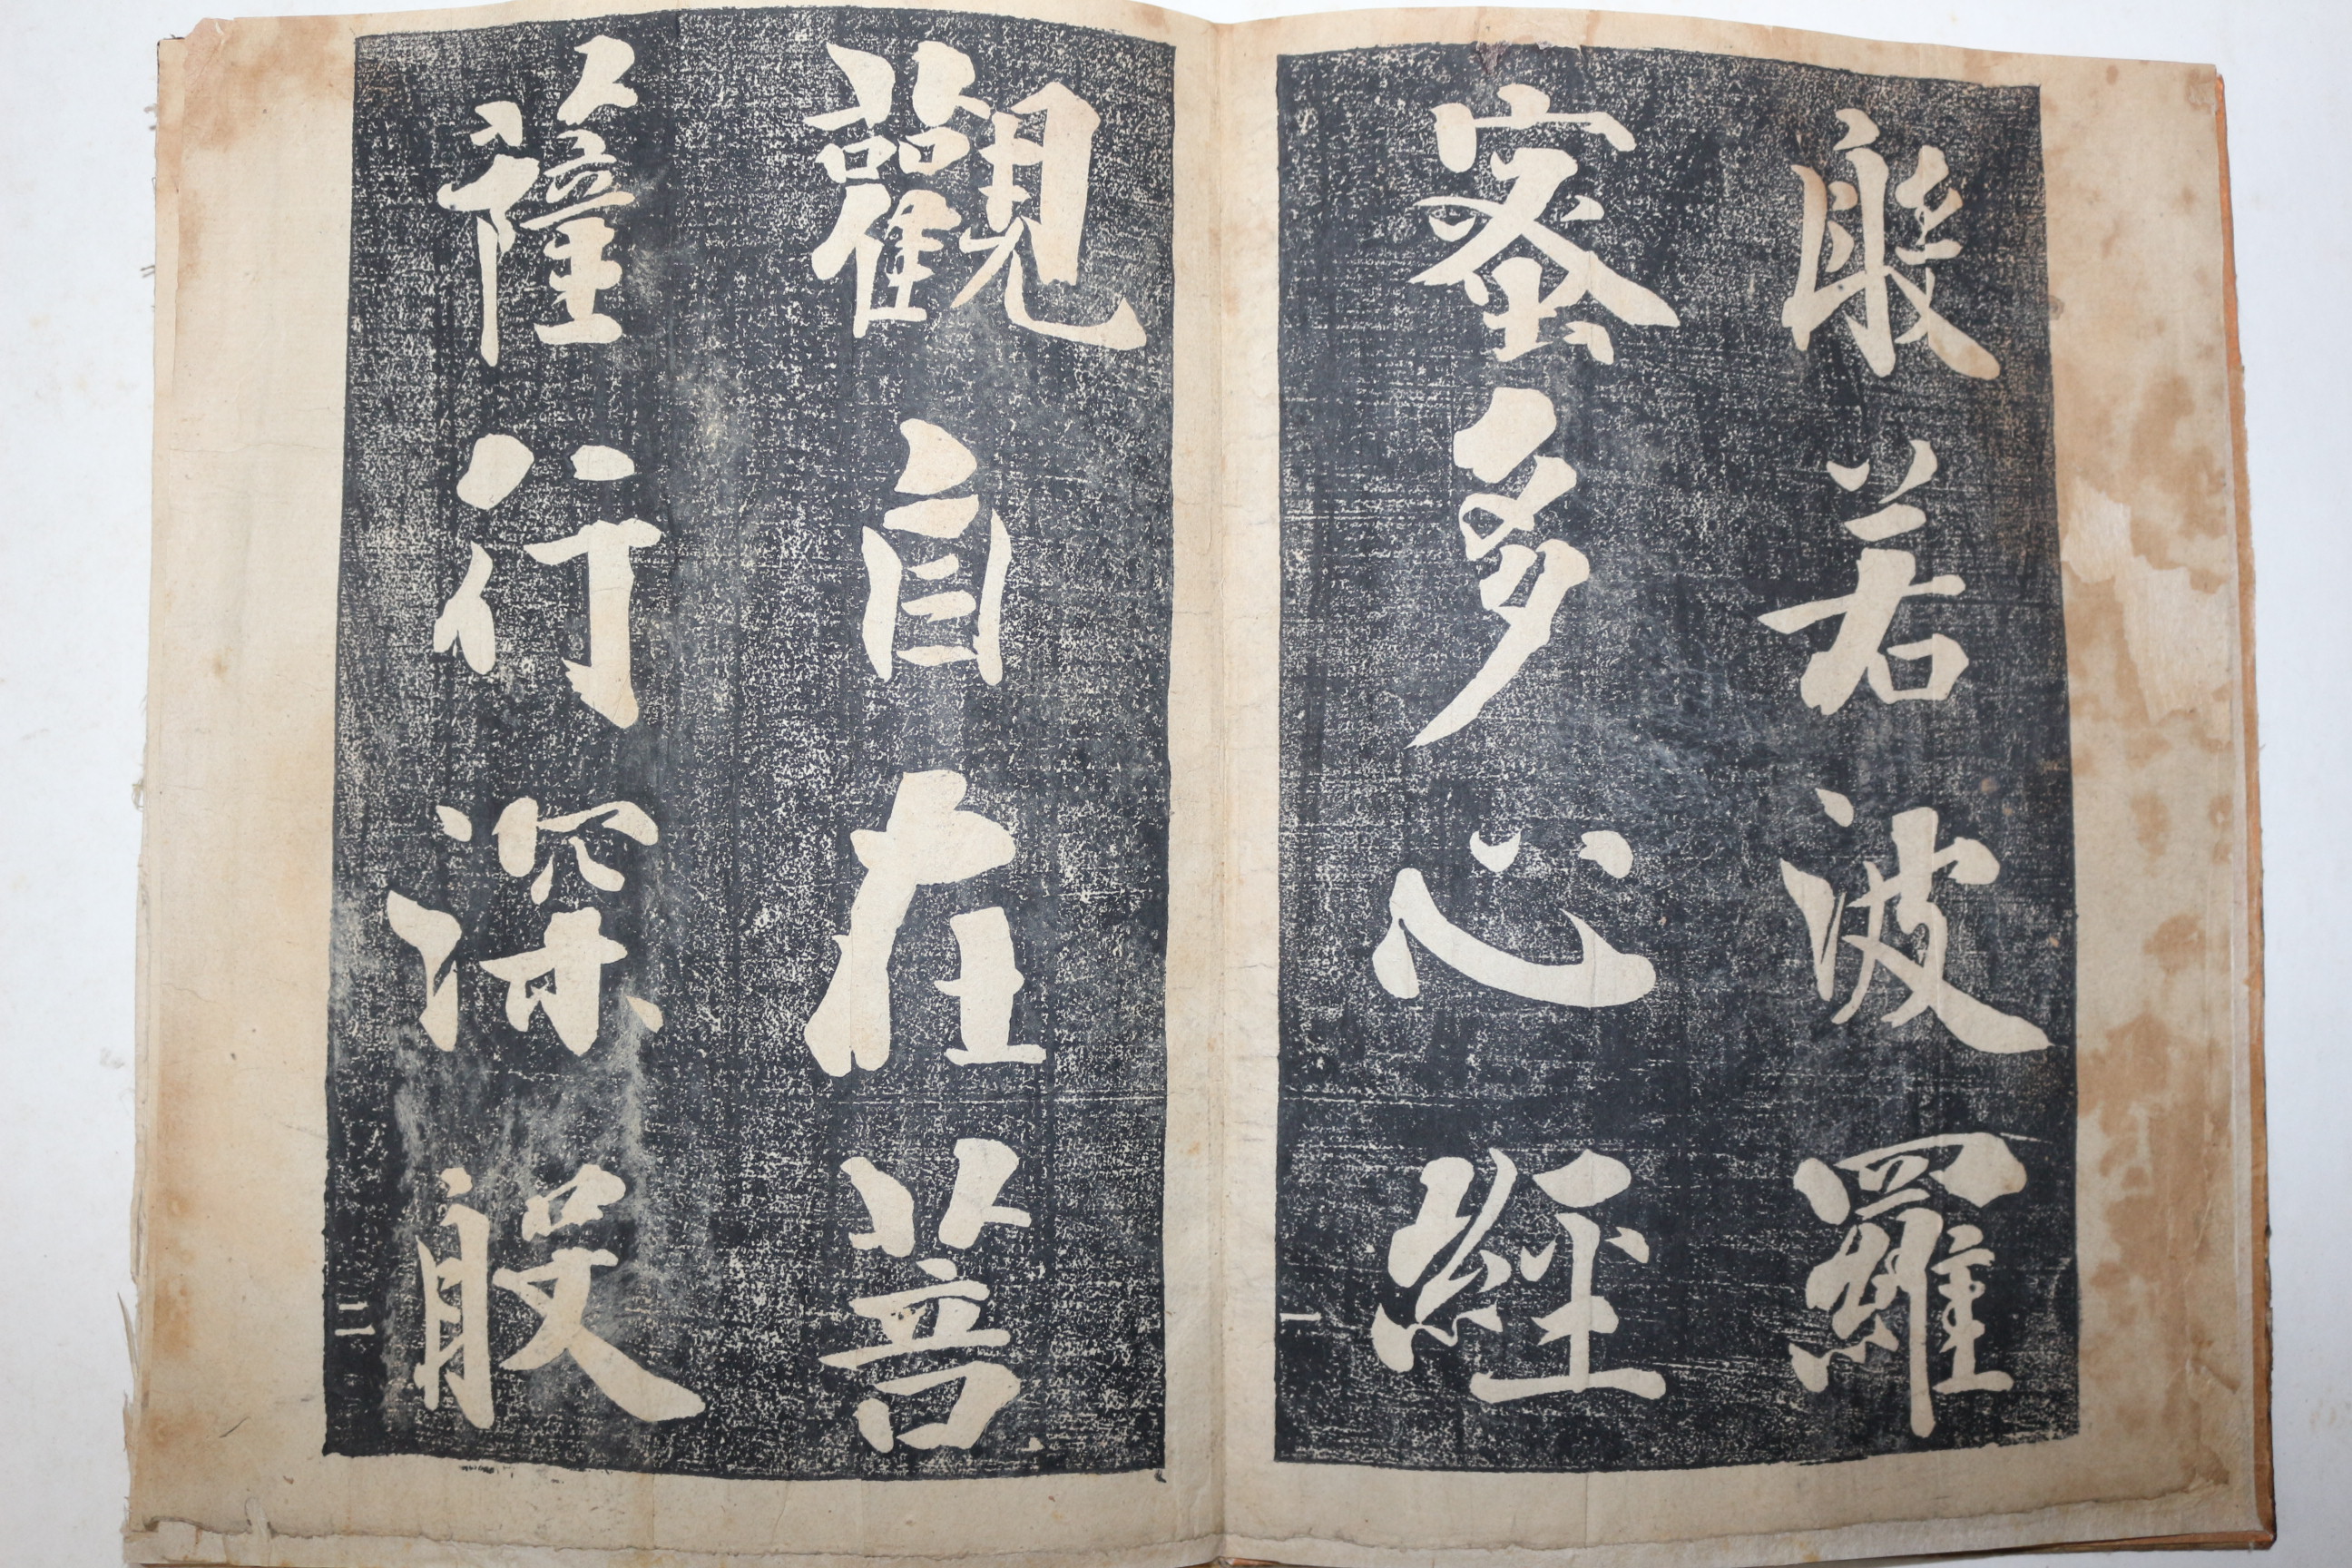 般若波羅
蜜多心經
一
觀自在菩
薩行深般
二